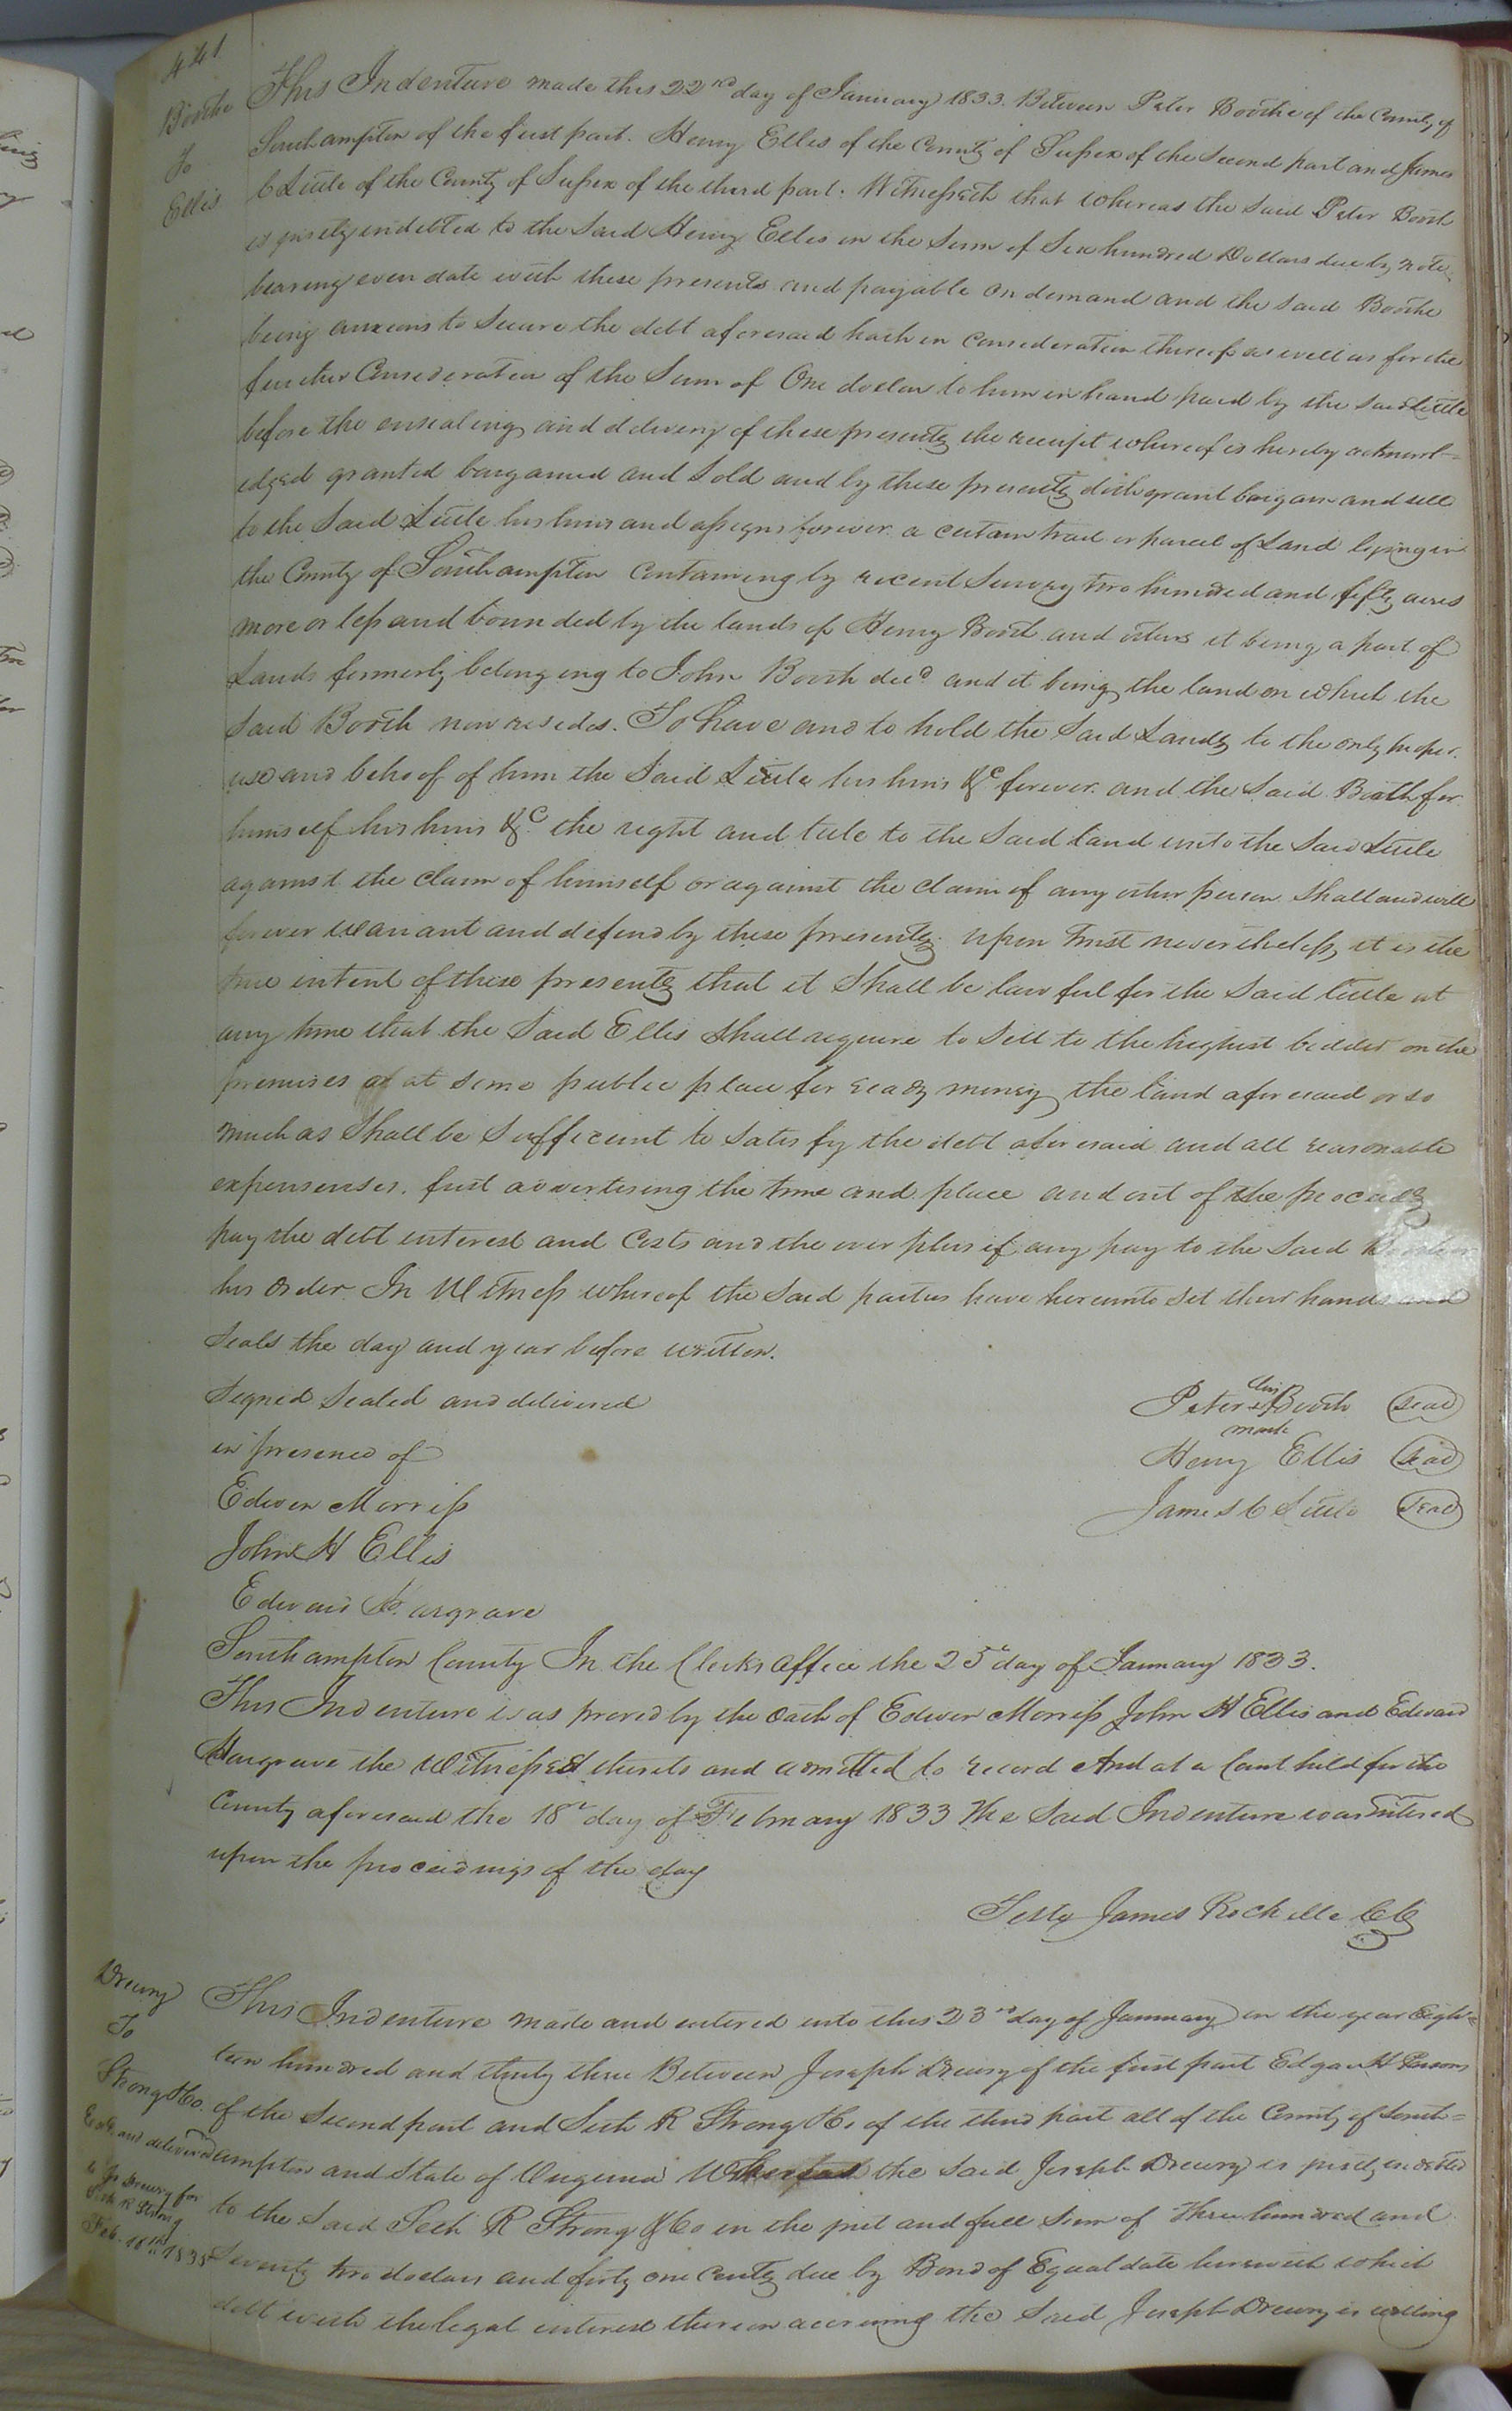 441
Boothe
To
Ellis
This Indenture made this 22nd day of January 1833. Between Peter Boothe of the County of
Southampton of the first part. Henry Ellis of the County of Sussex of the Second part and James
C Little of the County of Sussex of the third part. Witnesseth that whereas the said Peter Booth
is justly indebted to the Said Henry Ellis in the Sum of Six hundred Dollars due by note
bearing even date with these presents and payable on demand and the said Boothe
being anxious to Secure the debt aforesaid hath in consideration thereof as well as for the
further Consideration of the Sum of One dollar to him in hand paid by the said Little
before the ensealing and delivery of these presents the receipt whereof is hereby acknowl=
edged granted bargained and Sold and by these presents doth grant bargain and sell
to the Said Little his heirs and assigns forever a certain tract or parcel of Land lying in
the County of Southampton Containing by recent Survey two hundred and fifty acres
more or less and bounded by the lands of Henry Booth and others it being a part of
Lands formerly belonging to John Booth decd and it being the land on which the
Said Booth now resides. To have and to hold the Said Lands to the only proper
use and behoof of him the Said Little his heirs &c forever. and the Said Booth for
himself his heirs &c the right and title to the Said land unto the Said Little
against the claim of himself or against the claim of any other person Shall and will
forever warrant and defend by these presents. upon trust nevertheless, it is the
true intent of these presents that it Shall be lawful for the Said little at
any time that the Said Ellis Shall require to Sell to the highest bidder on the
premises at at some public place for ready money the land aforesaid or so
much as Shall be Sufficient to Satisfy the debt aforesaid and all reasonable
expensenses. first advertising the time and place and out of the proceeds
pay the debt interest and Costs and the over plus if any pay to the Said
his order. In Witness whereof the Said parties have hereunto Set their hands and
Seals the day and year before written.
Signed Sealed and delivered
in presence of
Edwin Morriss
John H Ellis
Edward Hargrave
Peter his Booth Seal
mark
Henry Ellis Seal
James C Little Seal
Southampton County In the Clerks office the 25th day of January 1833.
This Indenture was proved by the oath of Edwin Morriss John H Ellis and Edward
Hargrave the Witnesses thereto and admitted to record And at a Court held for the
County aforesaid the 18th day of February 1833 The Said Indenture was Entered
upon the proceedings of the day
Teste James Rochelle CC
Drewry
To
Strong &Co.
and delivered
to Jo Drewry for
Seth R Strong
Feb. 18th 1835
This Indenture made and entered into this 23rd day of January in the year Eigh=
teen hundred and thirty three Between Joseph Drewry of the first part Edgar H Parsons
of the Second part and Seth R Strong &Co of the third part all of the County of South=
ampton and State of Virginia Whereas the said Joseph Drewry is justly indebted
to the Said Seth R Strong &Co in the just and full Sum of Three hundred and
Seventy two dollars and forty one Cents due by Bond of Equal date herewith which
debt with the legal interest thereon accruing the Said Joseph Drewry is willing